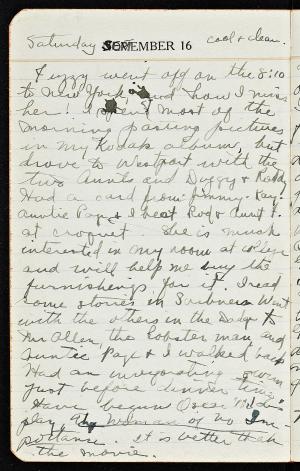 Saturday SEPTEMBER 16 cool & clear.
Fizzy went off on the 8:10
to New York and how I miss
her! I spent most of the
morning pasting pictures
in my Kodak album, but
drove to Westport with the
two Aunts and Duggy & Roddy
Had a card from Jimmy Kay.
Auntie Page & I beat Rod & Aunt F.
at croquet. She is much
interested in my room at college
and will help me buy the
furnishings for it. I read
some stories in Scribners. Went
with the others in the Dodge to
Mr Allen, the lobster man, and
Auntie Page & I walked back
Had an invigorating swim
just before dinner time.
Have begun Oscar Wilde's
play A Woman of No Im-
portance. It is better than
the movie.